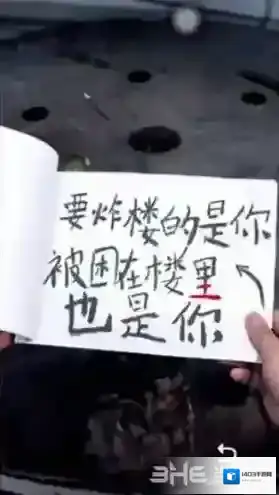 要炸楼的是你
被困在楼里
也是你
1403手游网